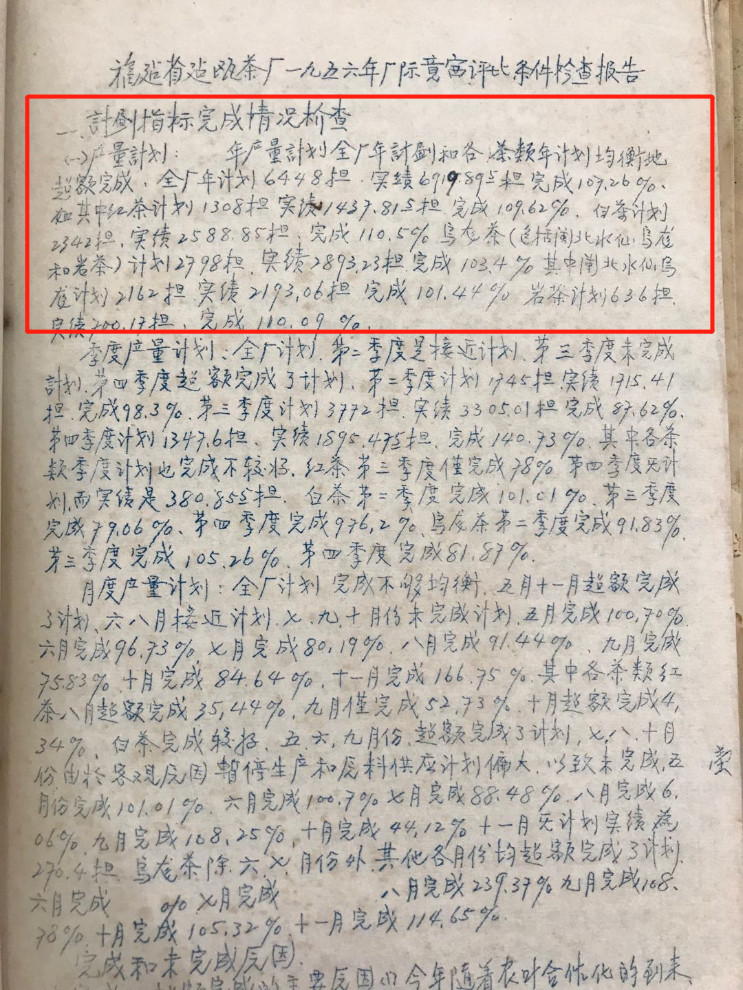 福建省建瓯茶厂一九五六年厂际竟赛评比条件检查报告
一.計劃指标完成情况检查
㈠产量計划： 年产量計划全厂年計劃和各茶类年计划均衡地
超额完成、全厂年计划6448担.实绩6919.895担完成107.26%.
如其中红茶计划1308担实绩1437.815担.完成109.62%、白茶计划
2342担.实绩2588.85担、完成110.5%乌龙茶(包括闽北水仙.乌龙
和岩茶)计划2798担、实绩2893.23担完成103.4%其中闽北水仙乌
龙计划2162担.实绩2193.06担 完成101.44%岩茶计划636担.
实绩700.17担、完成110.09%.
季度产量计划：全厂计划.第二季度是接近计划、第三季度未完成
計划.第四季度超额完成了计划、第二季度计划1745担实绩1715.41
担.完成98.3%.第三季度计划3772担、实绩3305.01担完成87.62%.
第四季度计划1347.6担、实绩1895.475担、完成140.73%.其中各茶
类季度计划也完成不较好.红茶第三季度僅完成78%第四季度无计
划,而实绩是380.855担.白茶第二季度完成101.01%.第三季度
完成79.06%、第四季度完成976.2%.乌龙茶第二季度完成91.83%
第三季度完成105.26%、第四季度完成81.87%.
月度产量计划：全厂计划完成不够均衡、五月十一月超额完成
了计划、六八月接近计划.七、九、十月份未完成计划、五月完成100.70%
六月完成96.73%七月完成80.19%、八月完成91.44%、九月完成
75.83%、十月完成84.64%、十一月完成166.75%.其中各茶类红
茶八月超额完成35.44%、九月僅完成52.73%、十月超额完成4.
34%、白茶完成较好、五.六.九月份.超额完成了计划,七、八、十月
份由於客观原因暂停生产和原料供应计划偏大.以致未完成.五
月份完成101.01%.六月完成100.7%七月完成88.48%.八月完成6.
06%九月完成108.25%、十月完成44.12%十一月无计划实绩为
270.4担.乌龙茶除六.七.月份外.其他各月份均超额完成了计划.
六月完成 %七月完成 八月完成239.37%九月完成108.
78%十月完成105.32%、十一月完成114.65%.
完成和未完成原因.
主要原因㈠今年随着农业合作化的到来